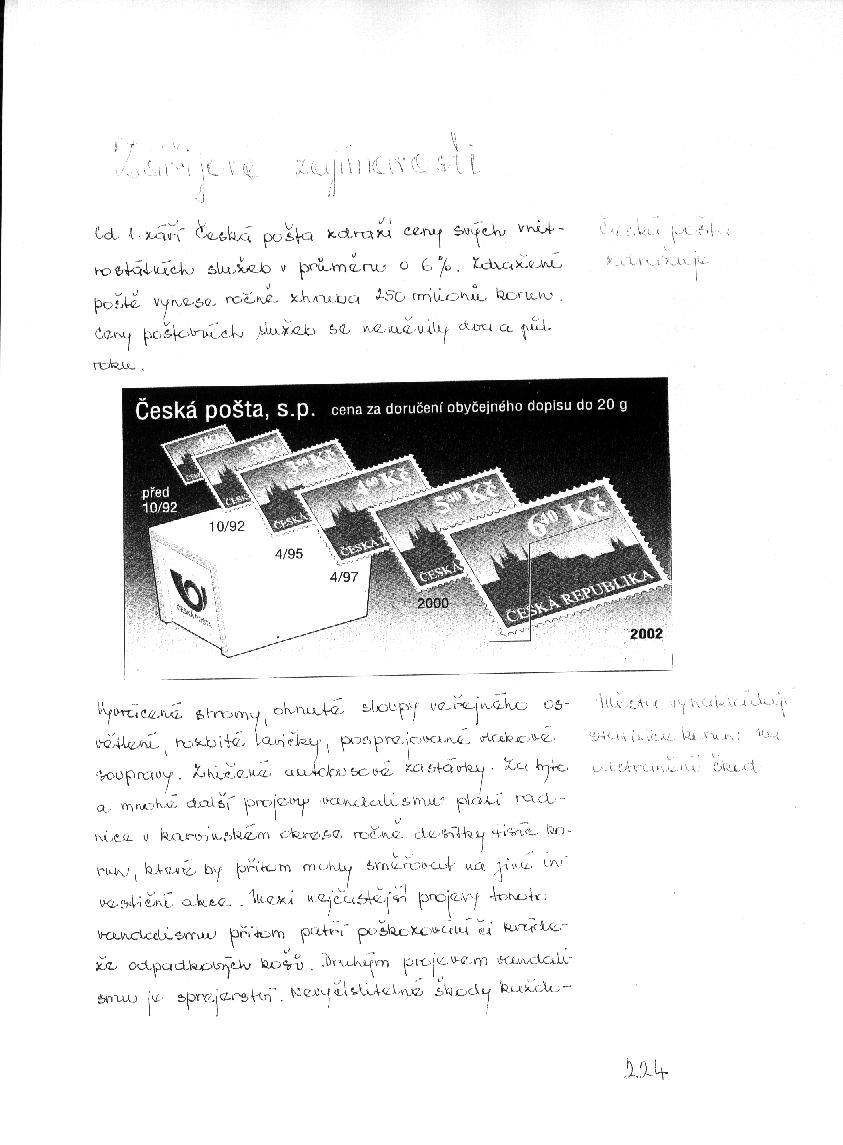 Zářijové zajímavosti
Od 1. září Česká pošta zdraží ceny svých vnit-
rostátních služeb v průměru o 6%. Zdražení
poště vynese ročně zhruba 250 milionů korun.
Ceny poštovních služeb se neměnily dva a půl
roku.
Česká pošta
zdražuje
Česká pošta, s.p. cena za doručení obyčejného dopisu do 20 g
3 00 Kč
4 00 Kč
5 40 Kč
6 40 Kč
ČESKÁ
ČESKÁ
ČESKÁ
ČESKÁ REPUBLIKA
ČESKÁ POŠTA
před
10/92
10/92
4/95
4/97
2000
2002
Vyvrácené stromy, ohnuté sloupy veřejného os-
větlení, rozbité lavičky, posprejované vlakové
soupravy. Zničené autobusové zastávky. Za tyto
a mnohé další projevy vandalismu platí rad-
nice v karvinském okrese ročně desítky tisíc ko-
run, které by přitom mohly směřovat na jiné in
vestiční akce. Mezi nejčastější projevy tohoto
vandalismu přitom patří poškozování či kráde-
že odpadkových košů. Druhým projevem vandali
smu je sprejerství. Nevyčíslitelné škody každo-
Města vynakládají
statisíce korun na
odstranění škod
224